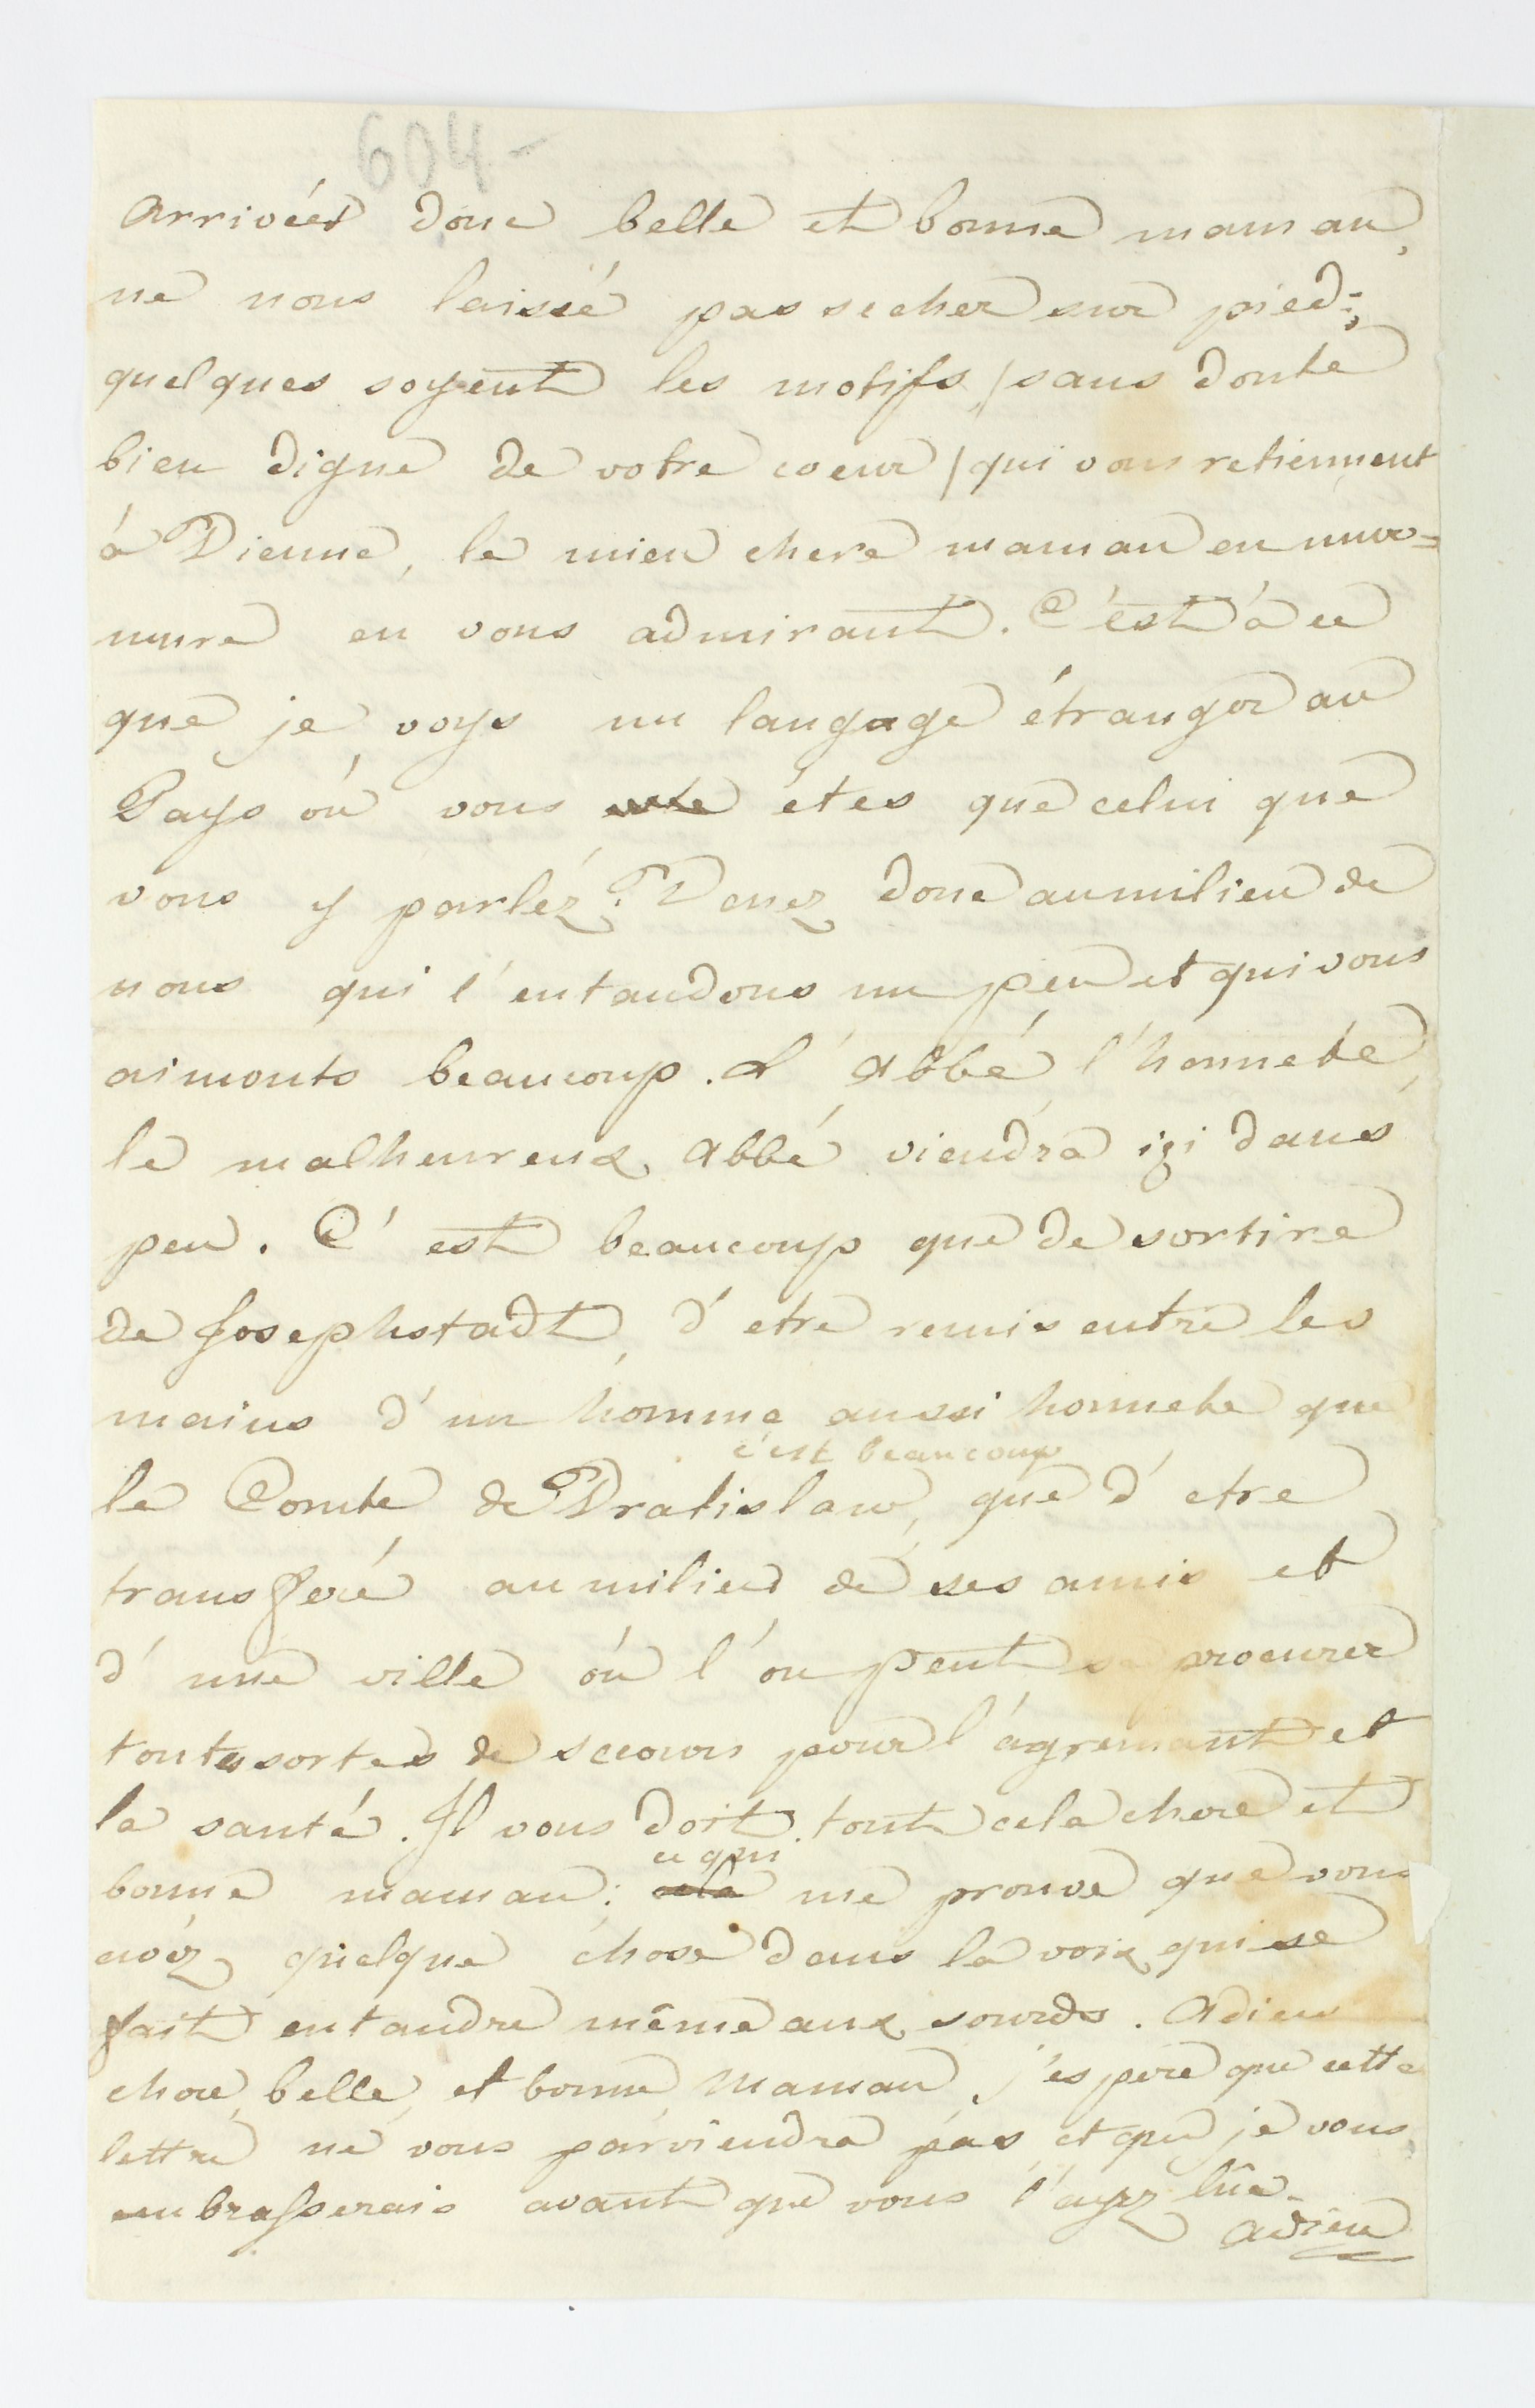 604-
Arrivéet donc belle et bonne maman,
ne nous laissé pas secher sur pied;
quelques soyent les motifs /sans doute
bien digne de votre coeur/ qui vous retiennent
à Vienne, le mien chere maman en mur=
mure en vous admirant. C'est à ce
que je voys un langage étranger au
Pays où vous êtes que celui que
vous y parléz. Venez donc au milieu de
nous qui l'entandons un peu et qui vous
aimonts beaucoup. L'Abbé, l'honnete,
le malheureux Abbé viendra izi dans
peu. C'est beaucoup que de sortire
de Josephstadt, d'etre remis entre les
mains d'un homme aussi honnete que
c'est beaucoup
le Comte de Vratislaw, que d'etre
transferé au milieu de ses amis et
d'une ville où l'on peut se procurer
toutes sortes de secours pour l'agremant et
la santé. Il vous doit tout cela chere et
ce qui
bonne maman: cela me prouve que vous
avéz quelque chose dans la voix qui se
fait entandre même aux sourds. Adieu
chere, belle, et bonne, Maman, j'espere que cette
lettre ne vous parviendra pas, et que je vous
embrasserais avant que vous l'ayez lüe.
adieu